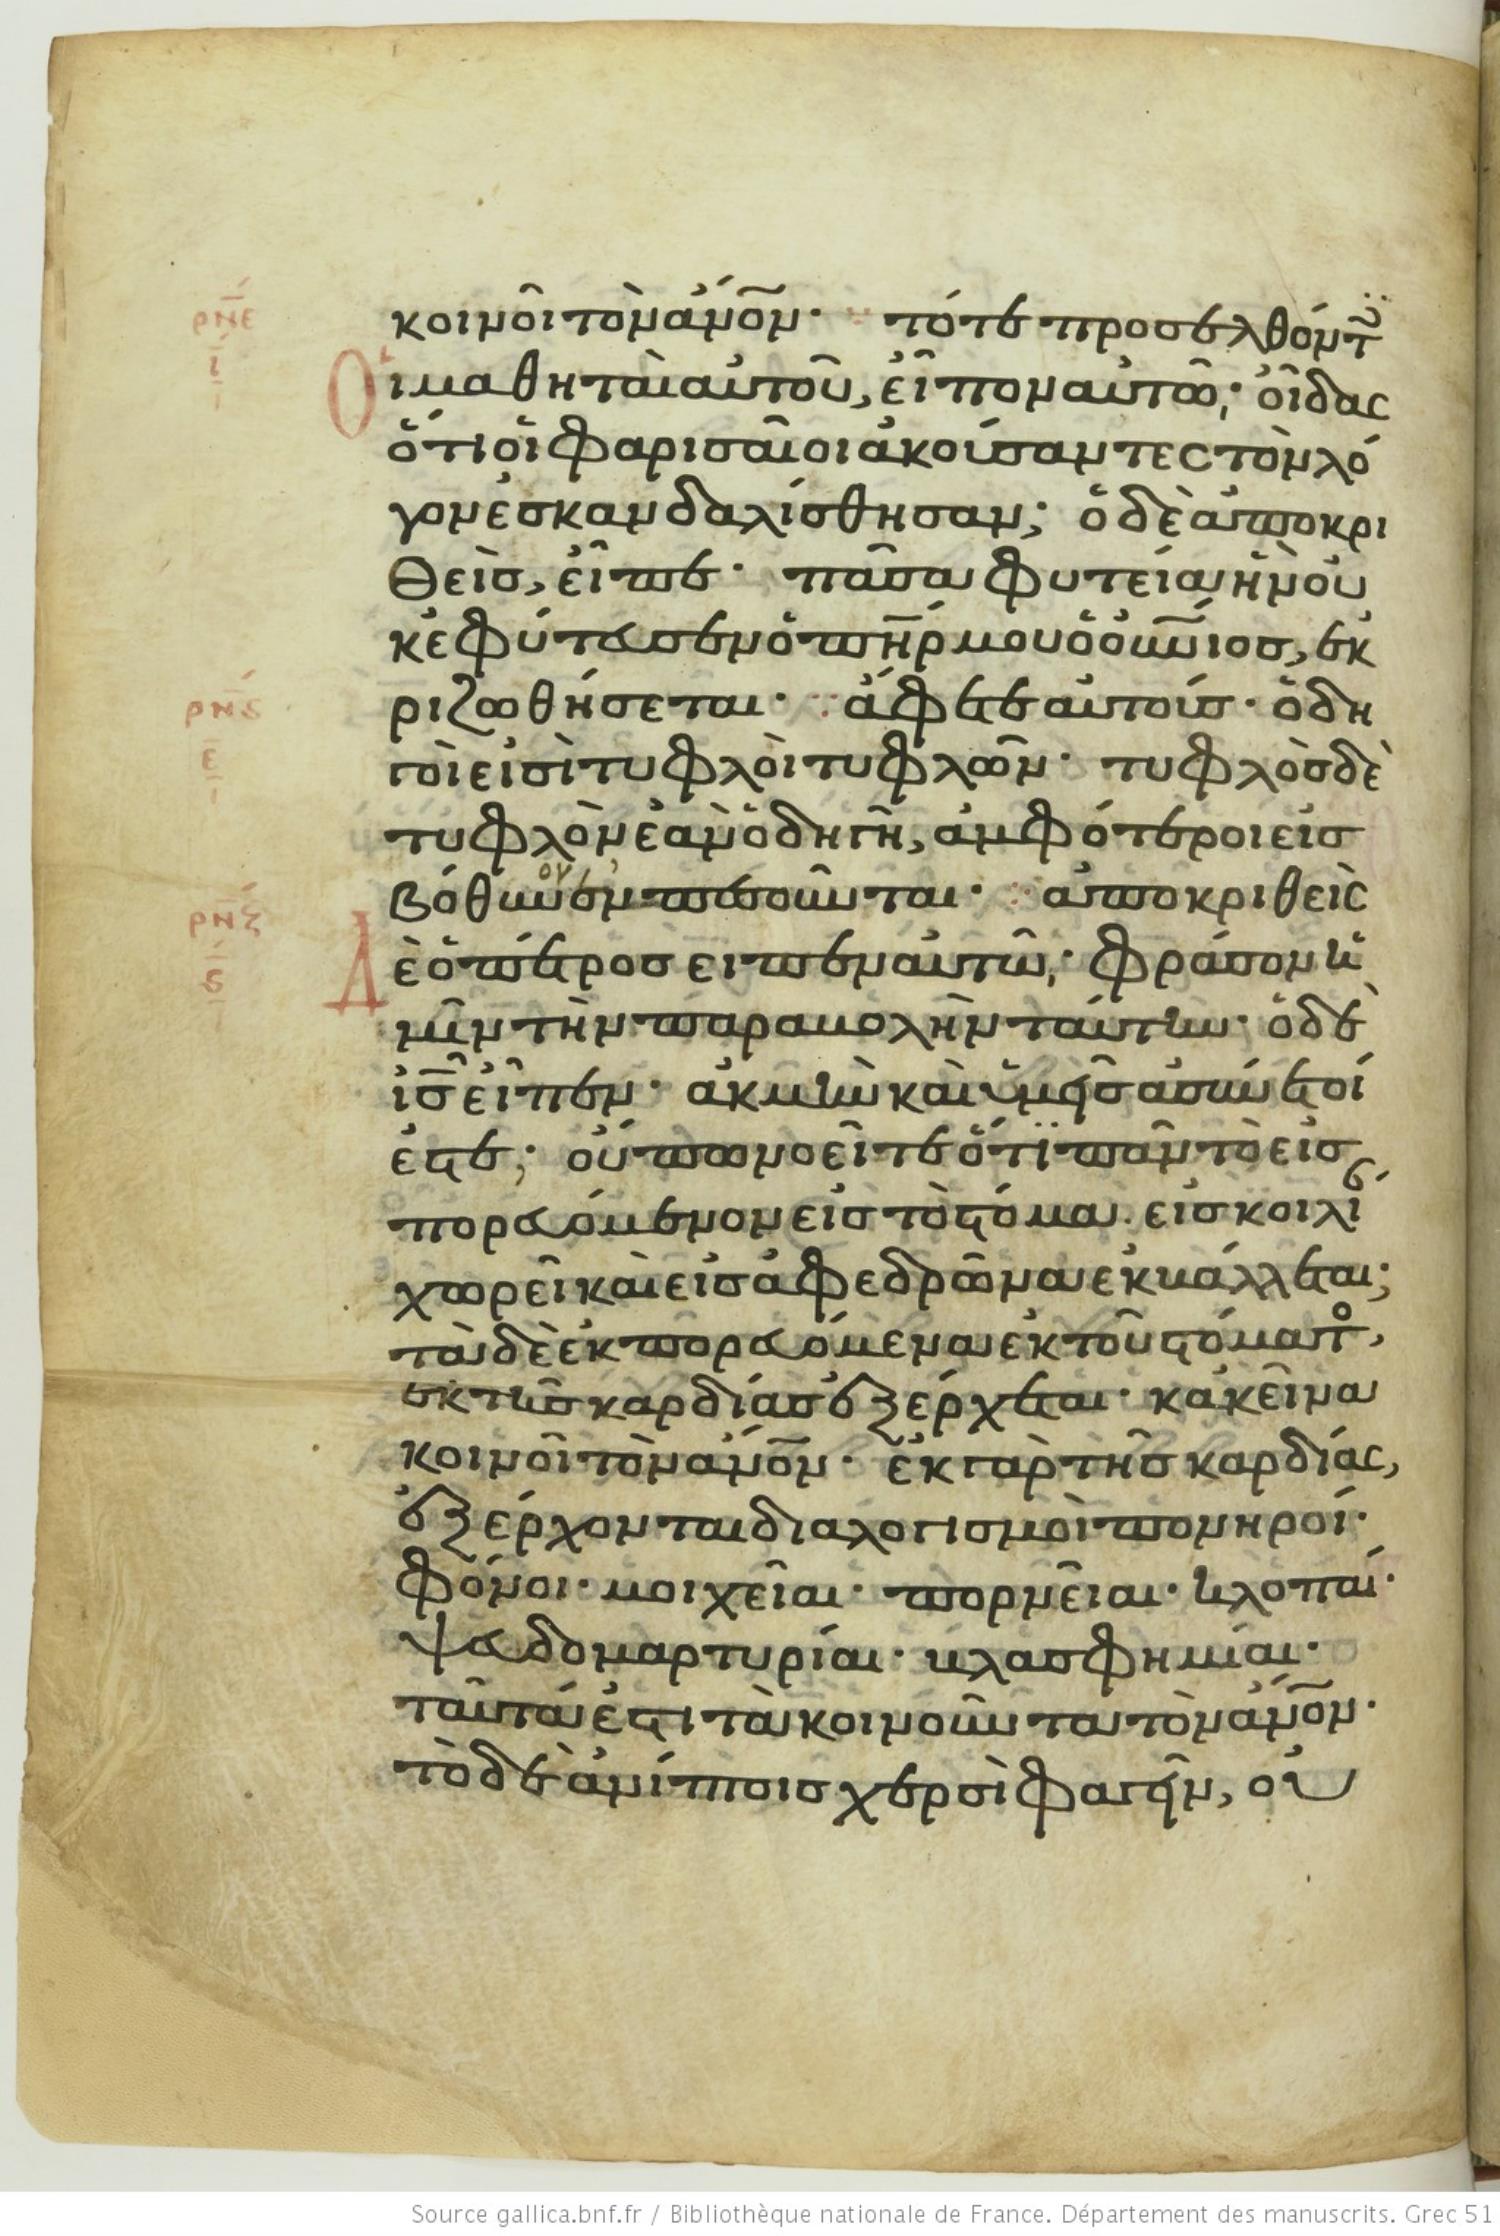 ρνε
ι
κοινοῖ τὸν ἄνον· τότε προσελθόντ
Οἱ μαθηταὶ αὐτοῦ, εἶπον αὐτῶ· οἶδας
ὅτι οἱ φαρισαῖοι ἀκούσαντες τὸν λό
γον ἐσκανδαλίσθησαν; ὁ δὲ ἀποκρι
θεὶς, εἶπε· πᾶσα φυτεία ἣν οὐ
κ ἐφύτευσεν ὁ πηρ μου ὁ οὐνιος, εκ
ρνς
ε
ριζωθήσεται· ἄφετε αὐτούς· ὁδη
γοὶ εἰσὶ τυφλοὶ τυφλῶν· τυφλὸς δὲ
τυφλὸν ἐὰν ὁδηγῆ, ἀμφότεροι εἰς
βόθυνον πεσοῦνται· ἀποκριθεὶς
ρνζ
ς
Δὲ ὁ πέτρος ειπεν αὐτῶ· φράσον ἡ
μῖν τὴν παραβολὴν ταύτην· ὁ δὲ
ις εἶπεν· ἀκμὴν καὶ ὑμεῖς ἀσύνετοί
ἐστε; οὔπω νοεῖτε ὅτι πᾶν τὸ εἰσ
πορευόμενον εἰς τὸ στόμα. εἰς κοιλί
χωρεῖ καὶ εἰς ἀφεδρῶνα ἐκβάλλεται;
τὰ δὲ ἐκπορευόμενα ἐκ τοῦ στόματο,
εκ τῆς καρδίας ἐξέρχεται· κἀκεῖνα
κοινοῖ τὸν ἄνον· ἐκ γὰρ τῆς καρδίας,
ἐξέρχονται διαλογισμοὶ πονηροί·
φόνοι· μοιχεῖαι· πορνεῖαι· κλοπαί·
ψευδομαρτυρίαι· βλασφημίαι·
ταῦτά ἐστι τὰ κοινοῦντα τὸν ἄνον·
τὸ δὲ ἀνίπτοις χερσὶ φαγεῖν, οὐ
Source gallica.bnf.fr / Bibliothèque nationale de France. Département des manuscrits. Grec 51